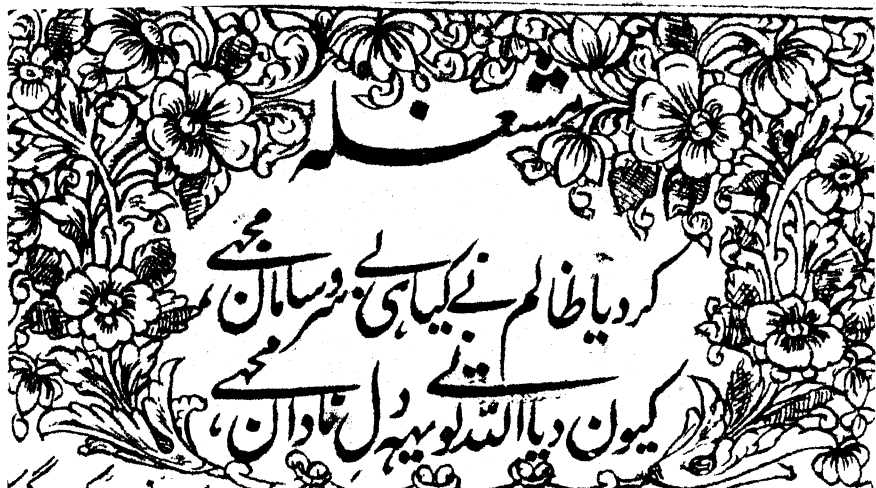 مشغلہ
کر دیا ظالم نے کیا ہی بی سر و سامان مجھے
کیون دیا اللہ تو نے یہہ دل نادان مجھے